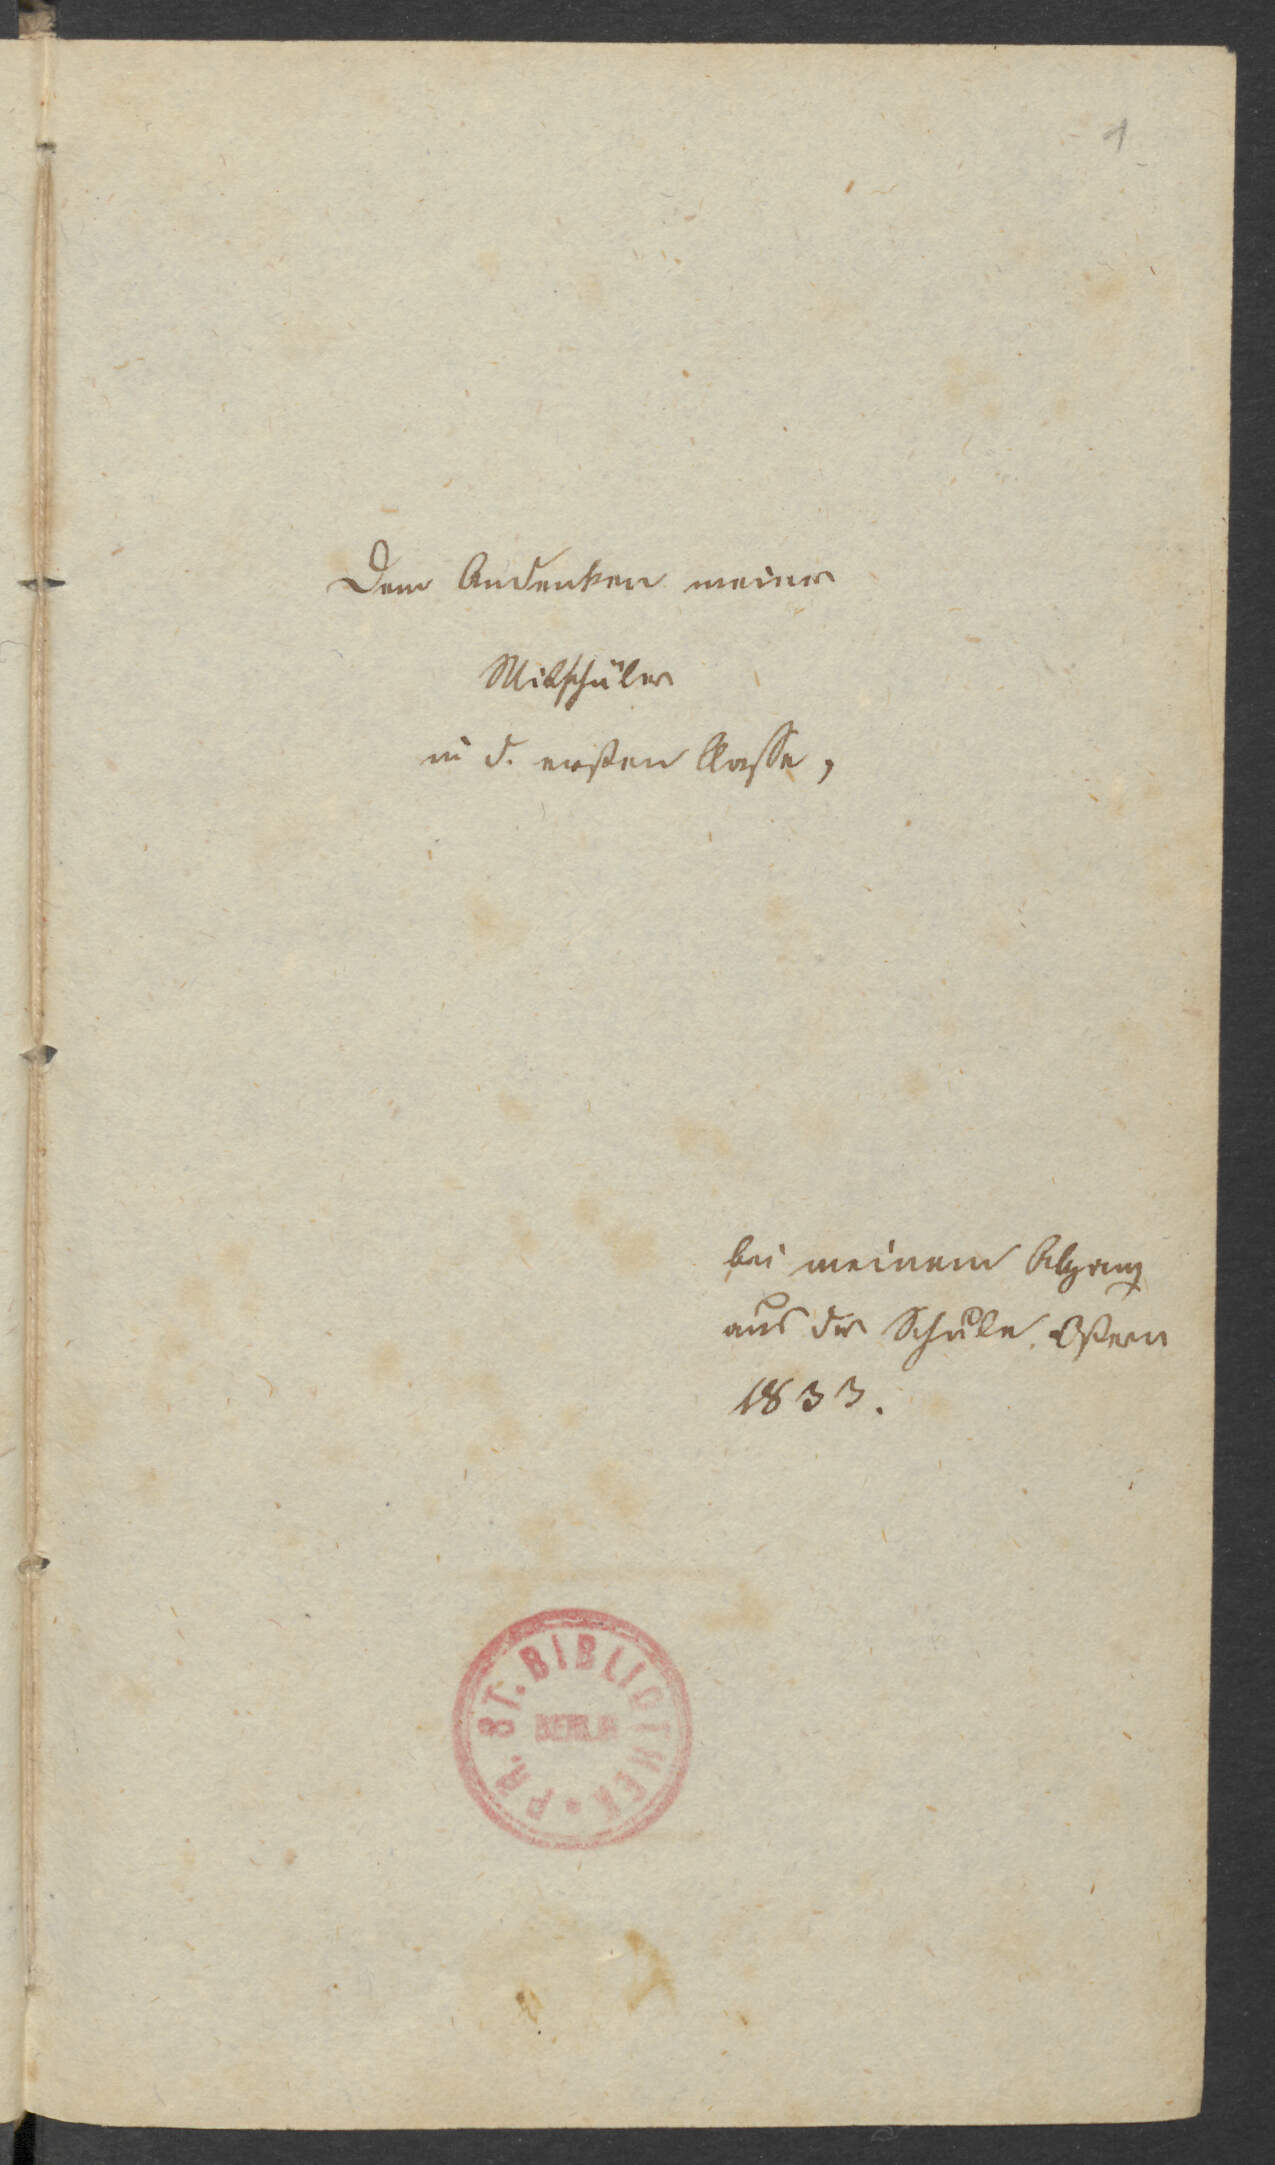 1
Dem Andenken meiner
Mitschüler
in d. ersten Classe,
bei meinem Abgang
aus der Schule. Ostern
1833.
PR. ST. BIBLIOTHEK
BERLIN